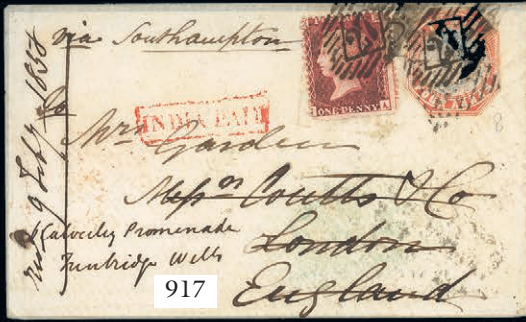 via Southampton
INDIA PAID
ONE PENNY
A
To
Mrs Garden
Messrs Coutts & Co
London
England
Calverley Promenade
Tunbridge Wells
9 Feby 1858
917